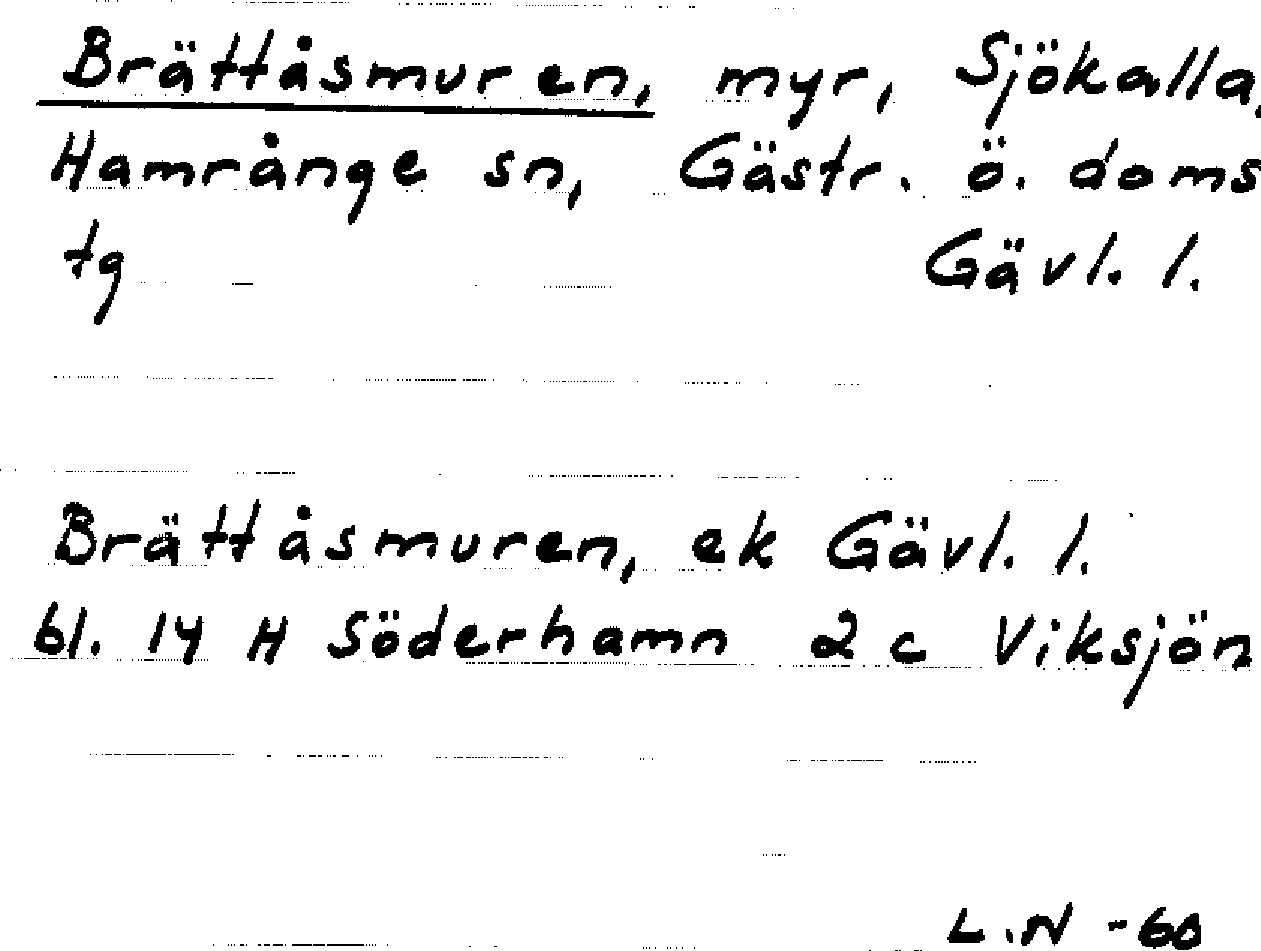 Brättåsmuren, myr, Sjökalla,
Hamrånge sn, Gästr. ö. doms
tg Gävl. l.
Brättåsmuren, ek Gävl. l.
bl. 14 H Söderhamn 2 c Viksjön
L.N -60